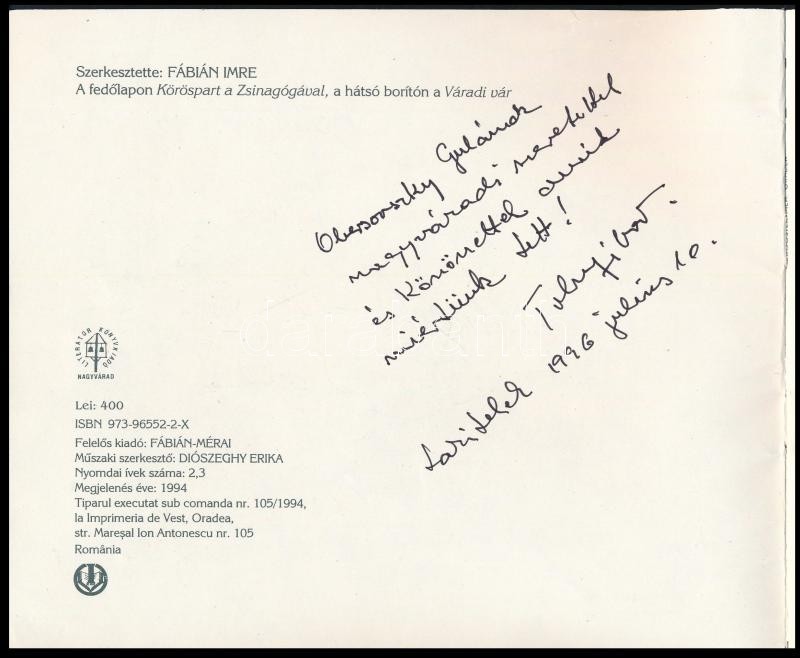 Szerkesztette: FÁBIÁN IMRE
A fedőlapon Köröspart a Zsinagógával, a hátsó borítón a Váradi vár
Obersovszky Gyulának
nagyváradi szeretettel
és Köszönettel amit
miértünk tett!
Tibor.
1996 július 10.
LITERATOR KÖNYVKIADÓ
NAGYVÁRAD
Lei: 400
ISBN 973-96552-2-X
Felelős kiadó: FÁBIÁN-MÉRAI
Műszaki szerkesztő: DIÓSZEGHY ERIKA
Nyomdai ívek száma: 2,3
Megjelenés éve: 1994
Tiparul executat sub comanda nr. 105/1994,
la Imprimeria de Vest, Oradea,
str. Mareşal Ion Antonescu nr. 105
România